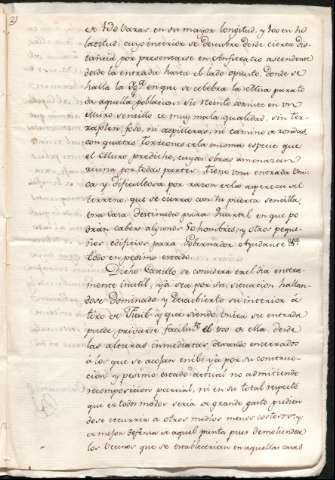 3)
de 180 varas en su mayor longitud, y 100 en su
latitud, cuyo interior se descubre desde cierta dis-
tancia, por presentarse en Anfiteatro ascendente
desde la entrada hasta el lado opuesto, donde se
halla la Yg.ª en que se celebra la
de aquella poblacion. Su recinto consiste en un
Muro sencillo de muy mala qualidad, sin ter-
raplen, foso, ni aspilleras, ni camino de rondas,
con quatro Torreones de la misma especie que
el Muro predicho, cuyas obras amenazan
ruina por todas partes. Tiene una entrada Uni-
ca y dificultosa por razon de la aspereza del
terreno, que se cierra con su puerta sencilla,
una casa destinada para Quartel en que po-
drán caber algunos 50 hombres, y otros peque-
ños edificios para Governador, Ayudante &ª
todo en pesimo estado.
Dicho Castillo se considera en el dia entera-
mente inutil, yá sea por su situacion hallan-
dose Dominado, y Descubierto su interior á
tiro de Fusil, y que siendo Unica su entrada
puede privarse facilm.te el uso de ella, desde
las alturas inmediatas, dexando encerrados
á los que se acojan en él; yá por su construc-
cion, y pesimo estado actual, no admitiendo
recomposicion parcial, ni en su total respeto
que de todos modos seria de grande gasto, pudien-
dose recurrir á otros medios menos costosos, y
de mejor defensa de aquel punto, pues demoliendose
los Vecinos que se establecieron en aquellas casas